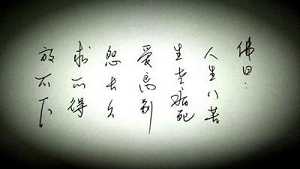 佛曰：
人生八苦
生老病死
爱离别
怨长久
求不得
放不下